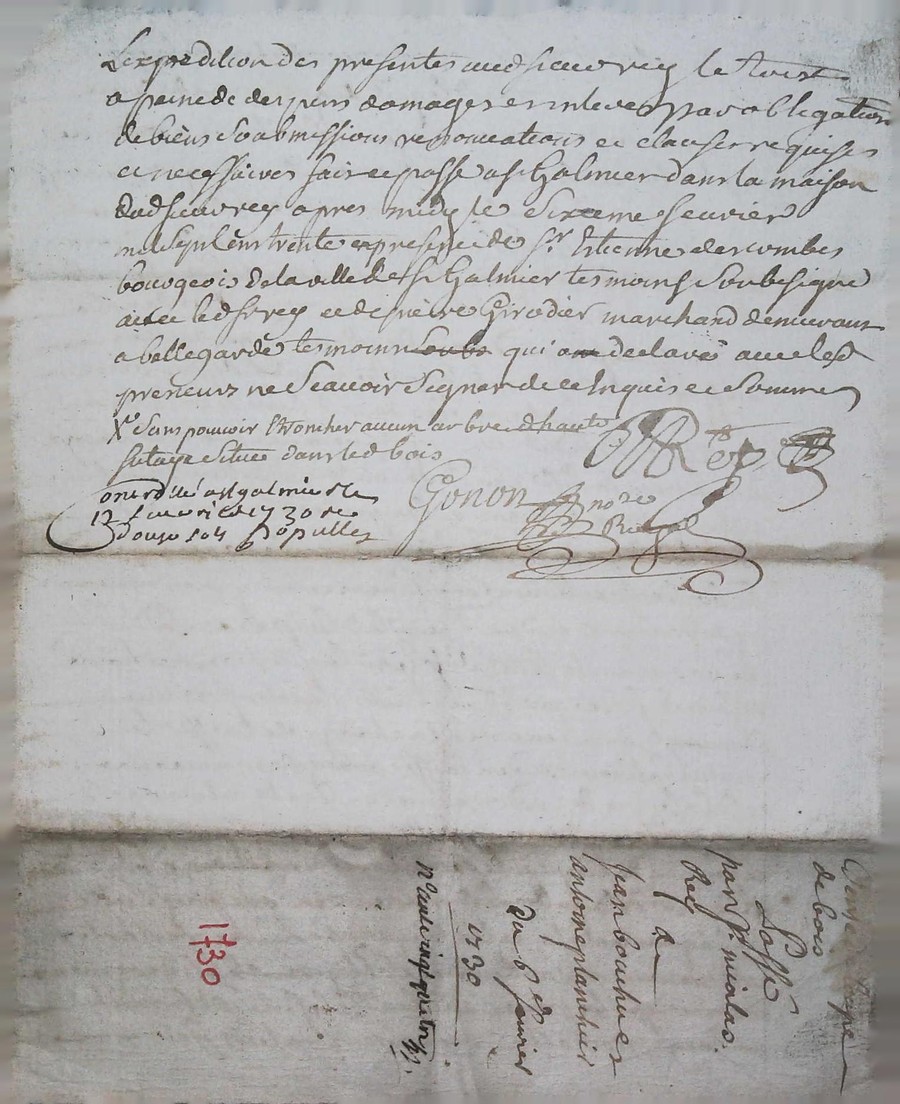 L'expedition des presentes aud sieur rey le tout
a peine de des pens damages et interes par obligation
de biens soubmissions renonciations et clauses requises
et necessaires fait et passe a st Galmier dans la maison
dud sieur rey apres midy le sixieme feuvrier
mil sept cens trente en presence de sr Etienne descombes
bourgeois de la ville de st Galmier tesmoins soubsigné
avec led sr rey et de pierre Girodier marchand demeurant
a bellegarde tesmoin qui a declaré avec lesd
preneurs ne scavoir signer de ce enquis et sommes
X sans pouvoir Ebroncher aucun arbre d haute
futaye situé dans led bois
Rey
Gonon
nore
Royal
Controllé a st galmier le
12 feuvrier 1730 re
douze sols populles
Vente de coupe
de bois
Passé
par sr nicolas
Rey
a
jean bouchuet
antoine planchier
du 6e feuvrier
1730
no quatre vingt quatorze
1730